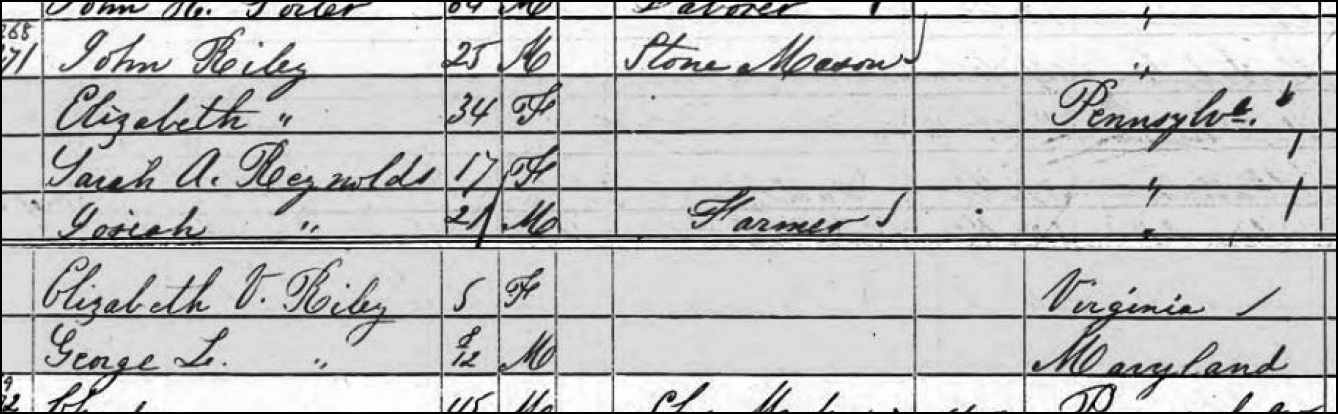 John R. Porter 64 M Laborer "
268
271 John Riley 25 M Stone Mason "
Elizabeth " 34 F Pennsylva.
Sarah A. Reynolds 17 F "
Josiah " 21 M Farmer "
Elizabeth V. Riley 5 F Virginia
George L. " 8/12 M Maryland